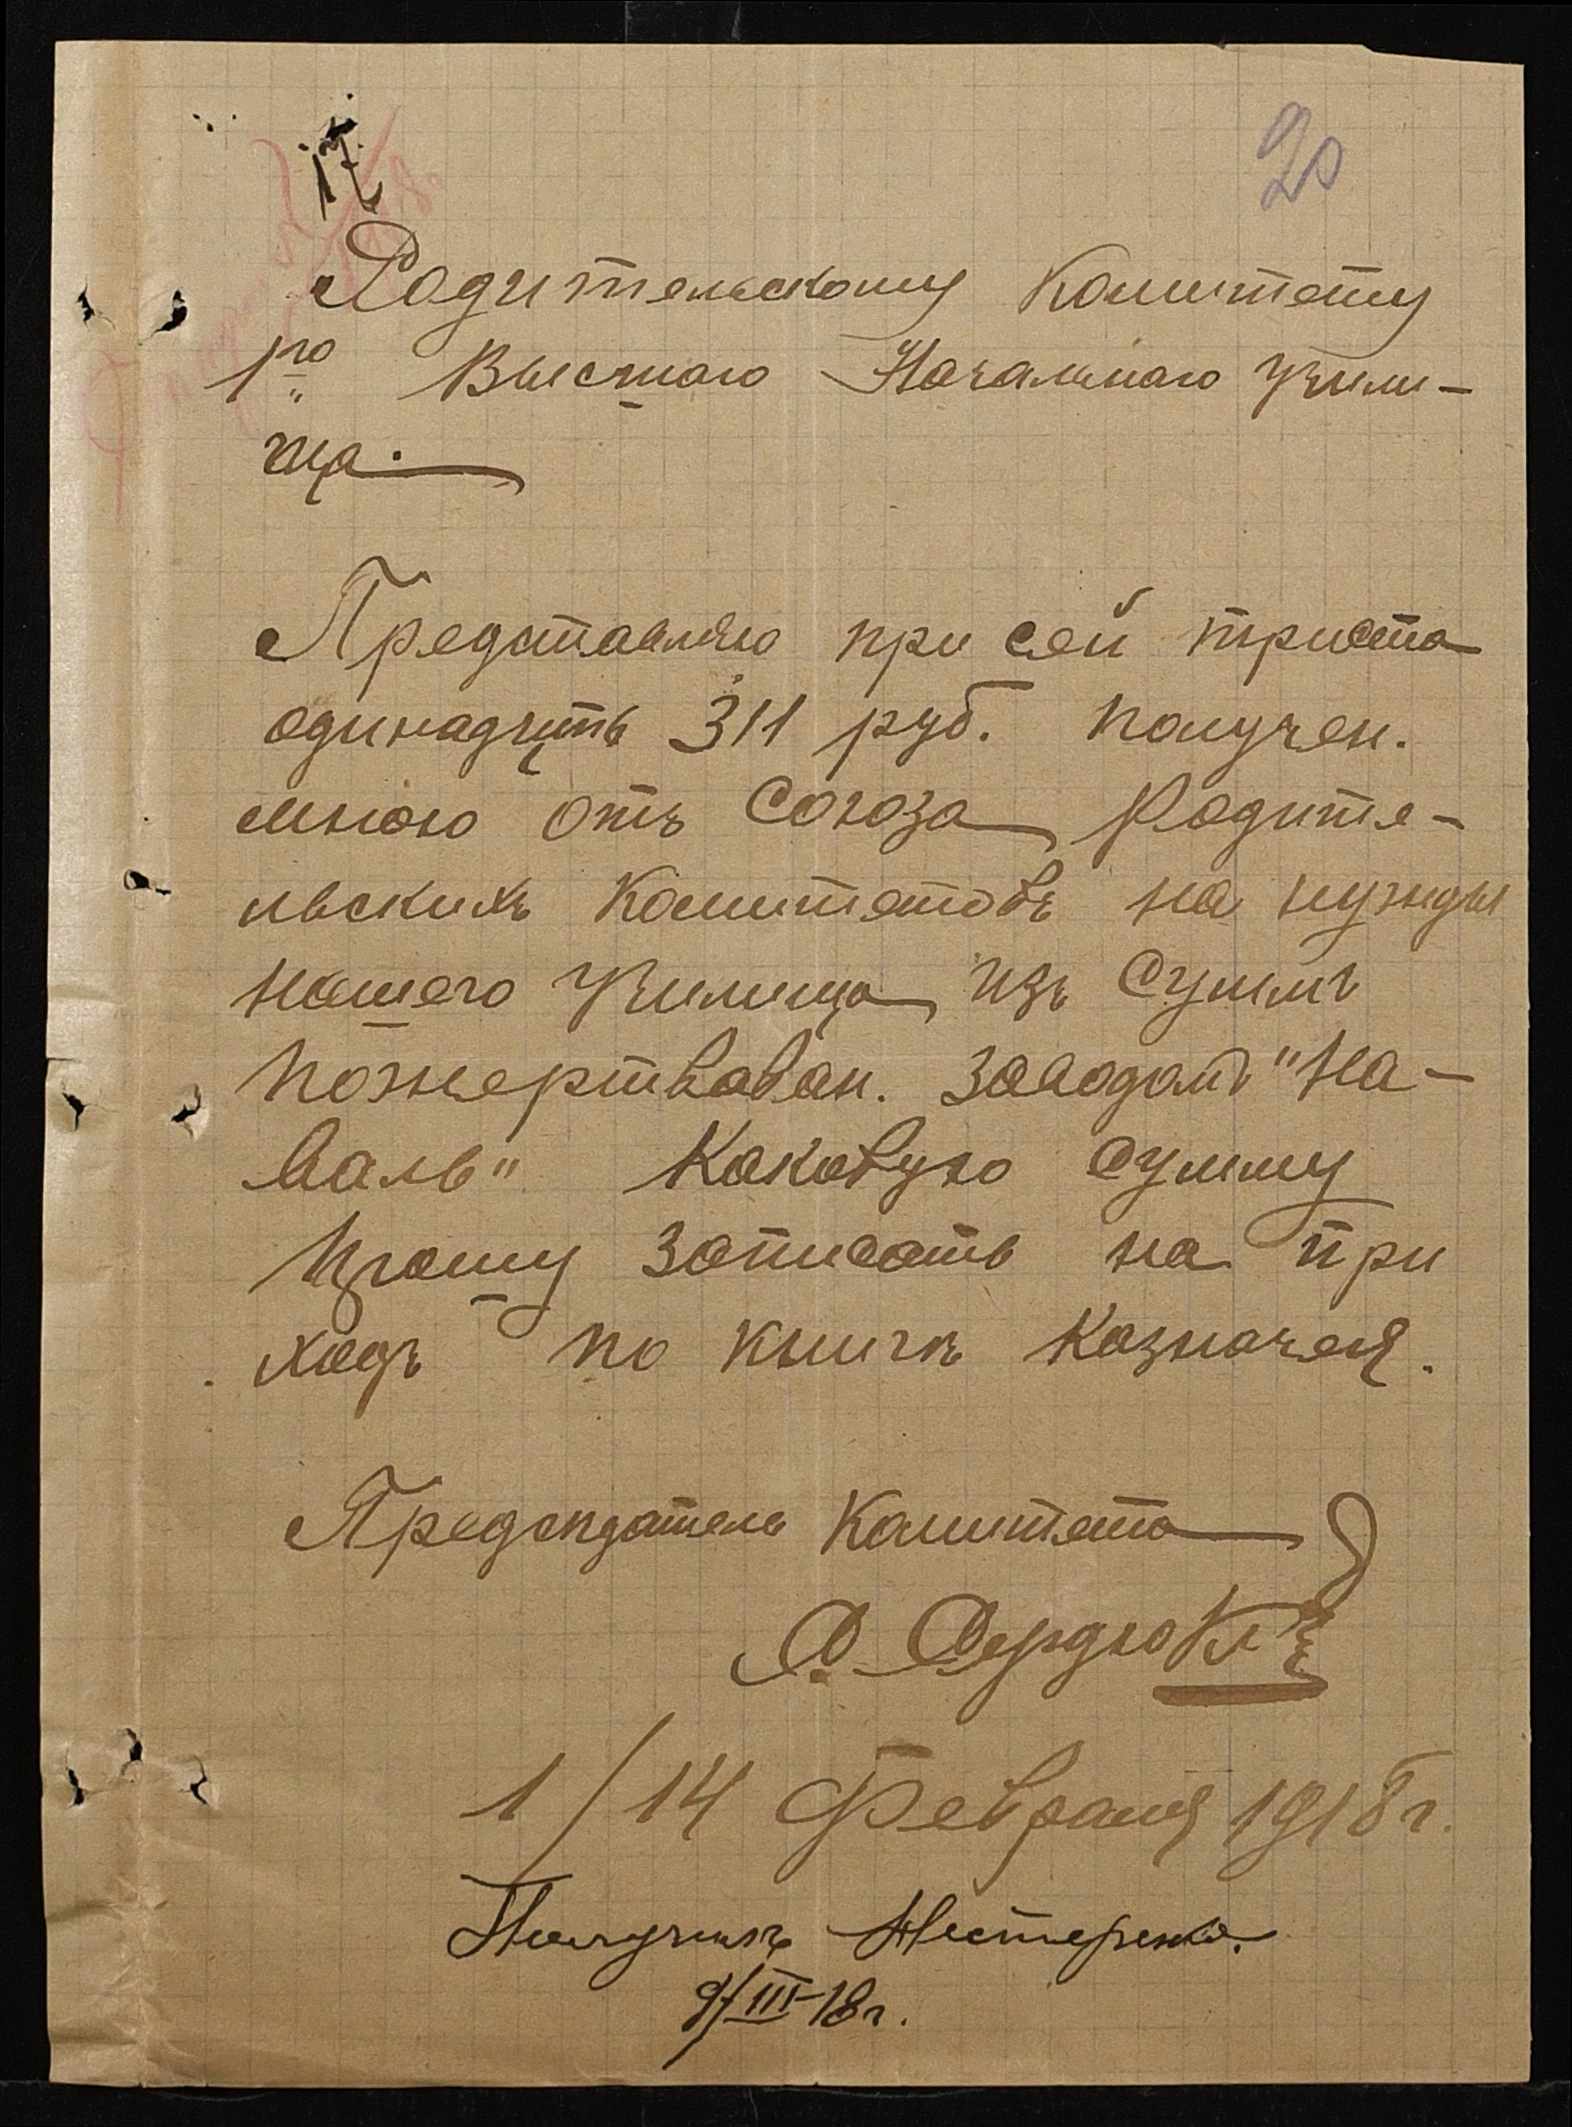 17
20
Родительскому Комитету
1го Высшаго Начальнаго Учили-
ща.
Представляю при сей триста
одинадцать 311 руб. получен.
мною отъ Союза Родите-
льскихъ Комитетовъ на нужды
нашего Училища изъ суммъ
пожертвован. заводомъ "На-
валь" Каковую сумму
прошу записать на при
ходъ по книгѣ Казначея.
Предсѣдатель Комитета
С. Сердюкъ
1/14 Февраля 1918 г.
Получилъ Нестеренко.
9/III 18 г.